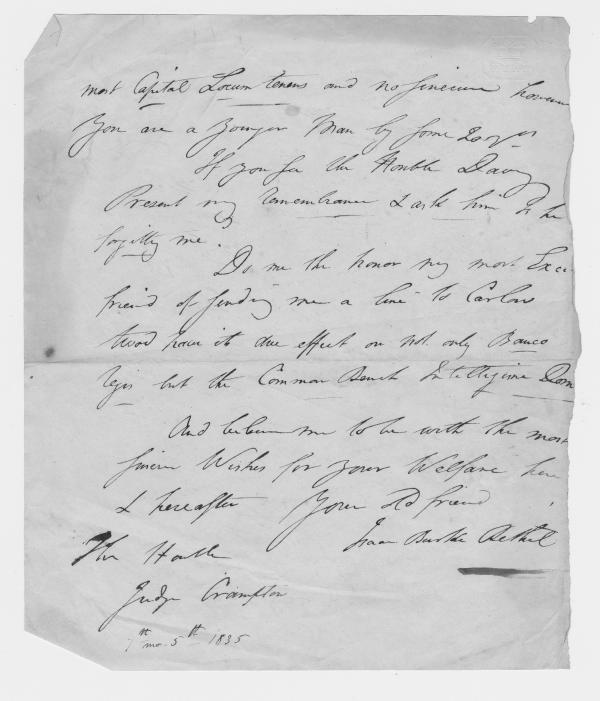 most Capital Locum tenens and no sinecure however
You are a younger Man by some
If you see the Honble Davy
Present my remembrance & ask him if he
forgitty me?
Do me the honor my most Exce
friend of sending me a line to Carlow
twod have its due effect on not only Banco
regis but the Common Bench Intelligime Dom
And believe me to be with the most
sincere Wishes for your Welfare here
& hereafter Your Old friend
Isaac Burke Bethel
The Honble
Judge Crampton
7th mo. 5th 1835